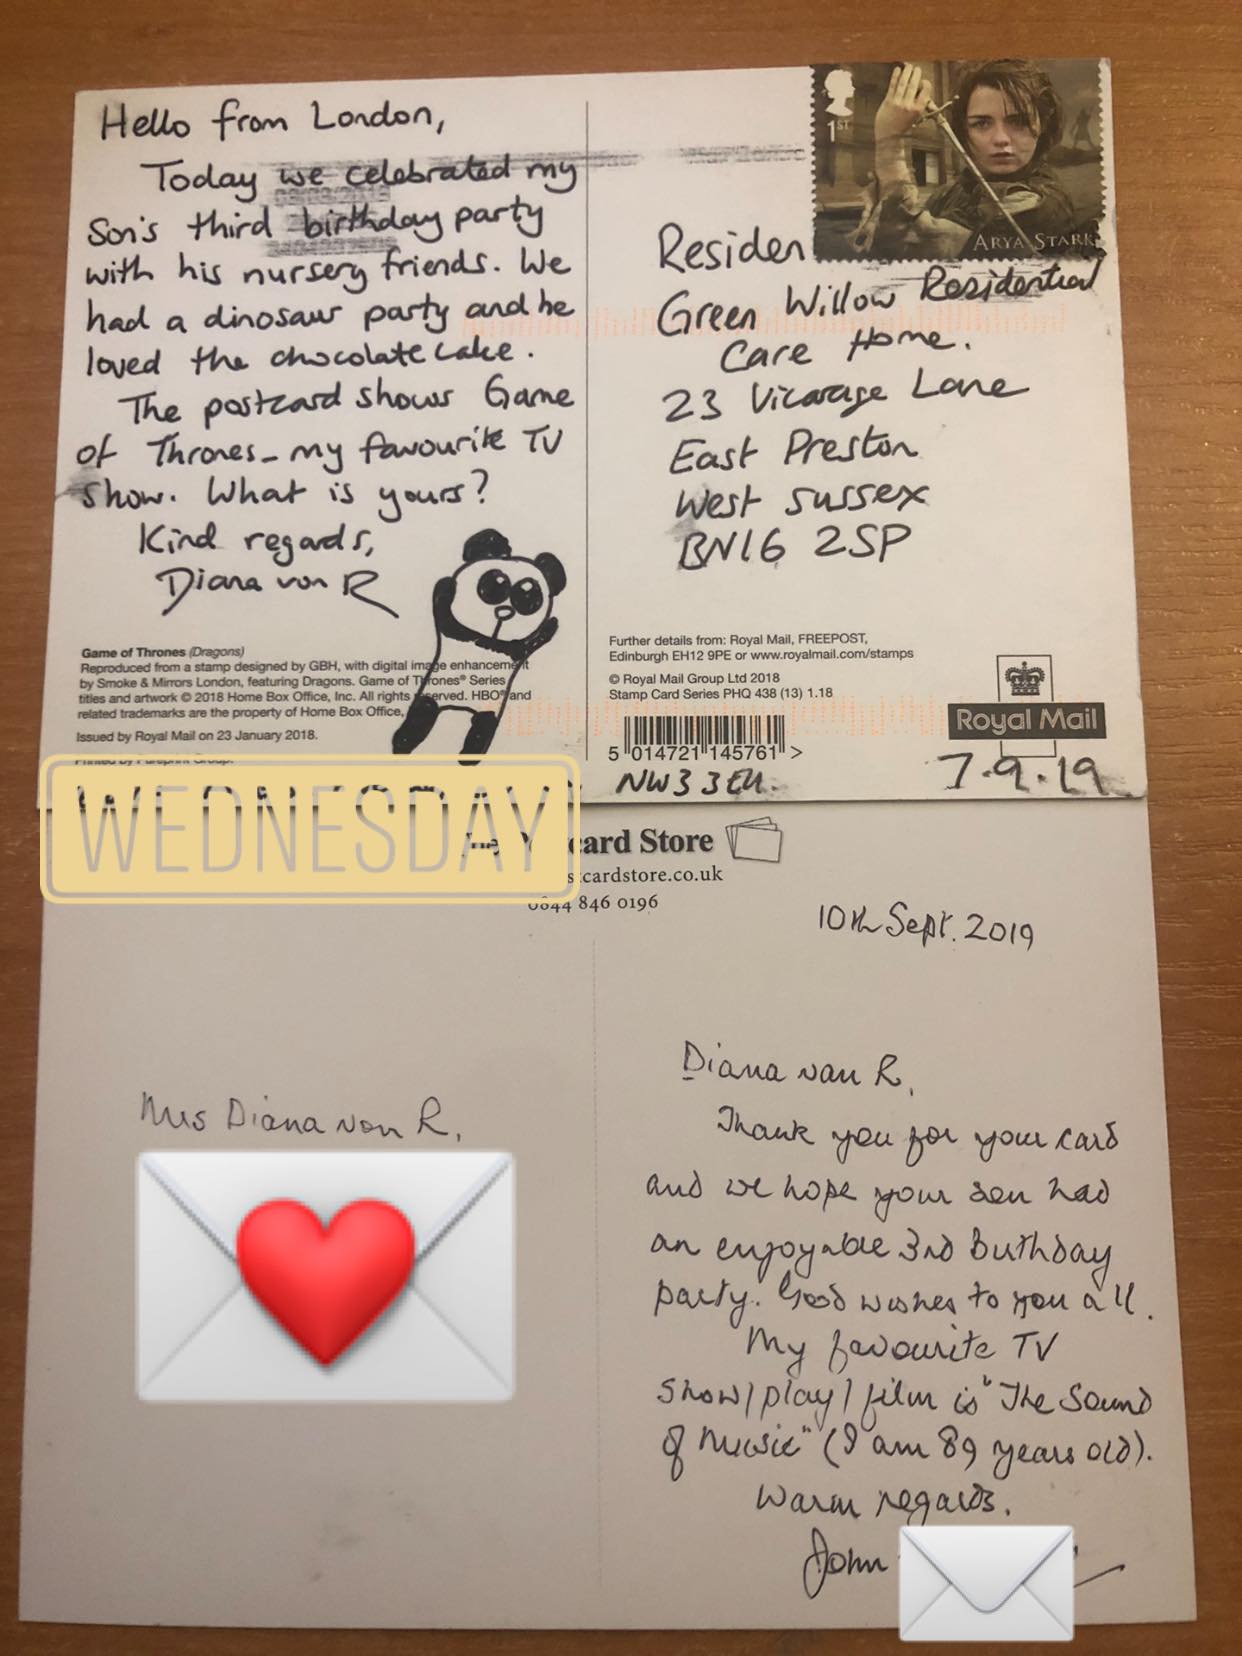 Hello from London,
Today we celebrated my
Son's third birthday party
with his nursery friends. We
had a dinosaur party and he
loved the chocolate cake.
The postcard shows Game
of Thrones - my favourite TV
show. What is yours?
Kind regards,
Diana von R
Game of Thrones (Dragons)
Reproduced from a stamp designed by GBH, with digital image enhancement
by Smoke & Mirrors London, featuring Dragons. Game of Thrones® Series
titles and artwork © 2018 Home Box Office, Inc. All rights reserved. HBO® and
related trademarks are the property of Home Box Office,
Issued by Royal Mail on 23 January 2018.
Printed by Pureprint Group.
1st
ARYA STARK
Residen
Green Willow Residential
Care Home.
23 Vicarage Lane
East Preston
West Sussex
BN16 2SP
Further details from: Royal Mail, FREEPOST,
Edinburgh EH12 9PE or www.royalmail.com/stamps
© Royal Mail Group Ltd 2018
Stamp Card Series PHQ 438 (13) 1.18
Royal Mail
5 014721 145761 >
NW3 3EU.
7.9.19
WEDNESDAY
card Store
stcardstore.co.uk
0844 846 0196
10th Sept. 2019
Mrs Diana von R.
Diana van R.
Thank you for your card
and we hope your son had
an enjoyable 3rd Birthday
party. Good wishes to you all.
My favourite TV
show/play/film is "The Sound
of Music" (I am 89 years old).
Warm regards.
John